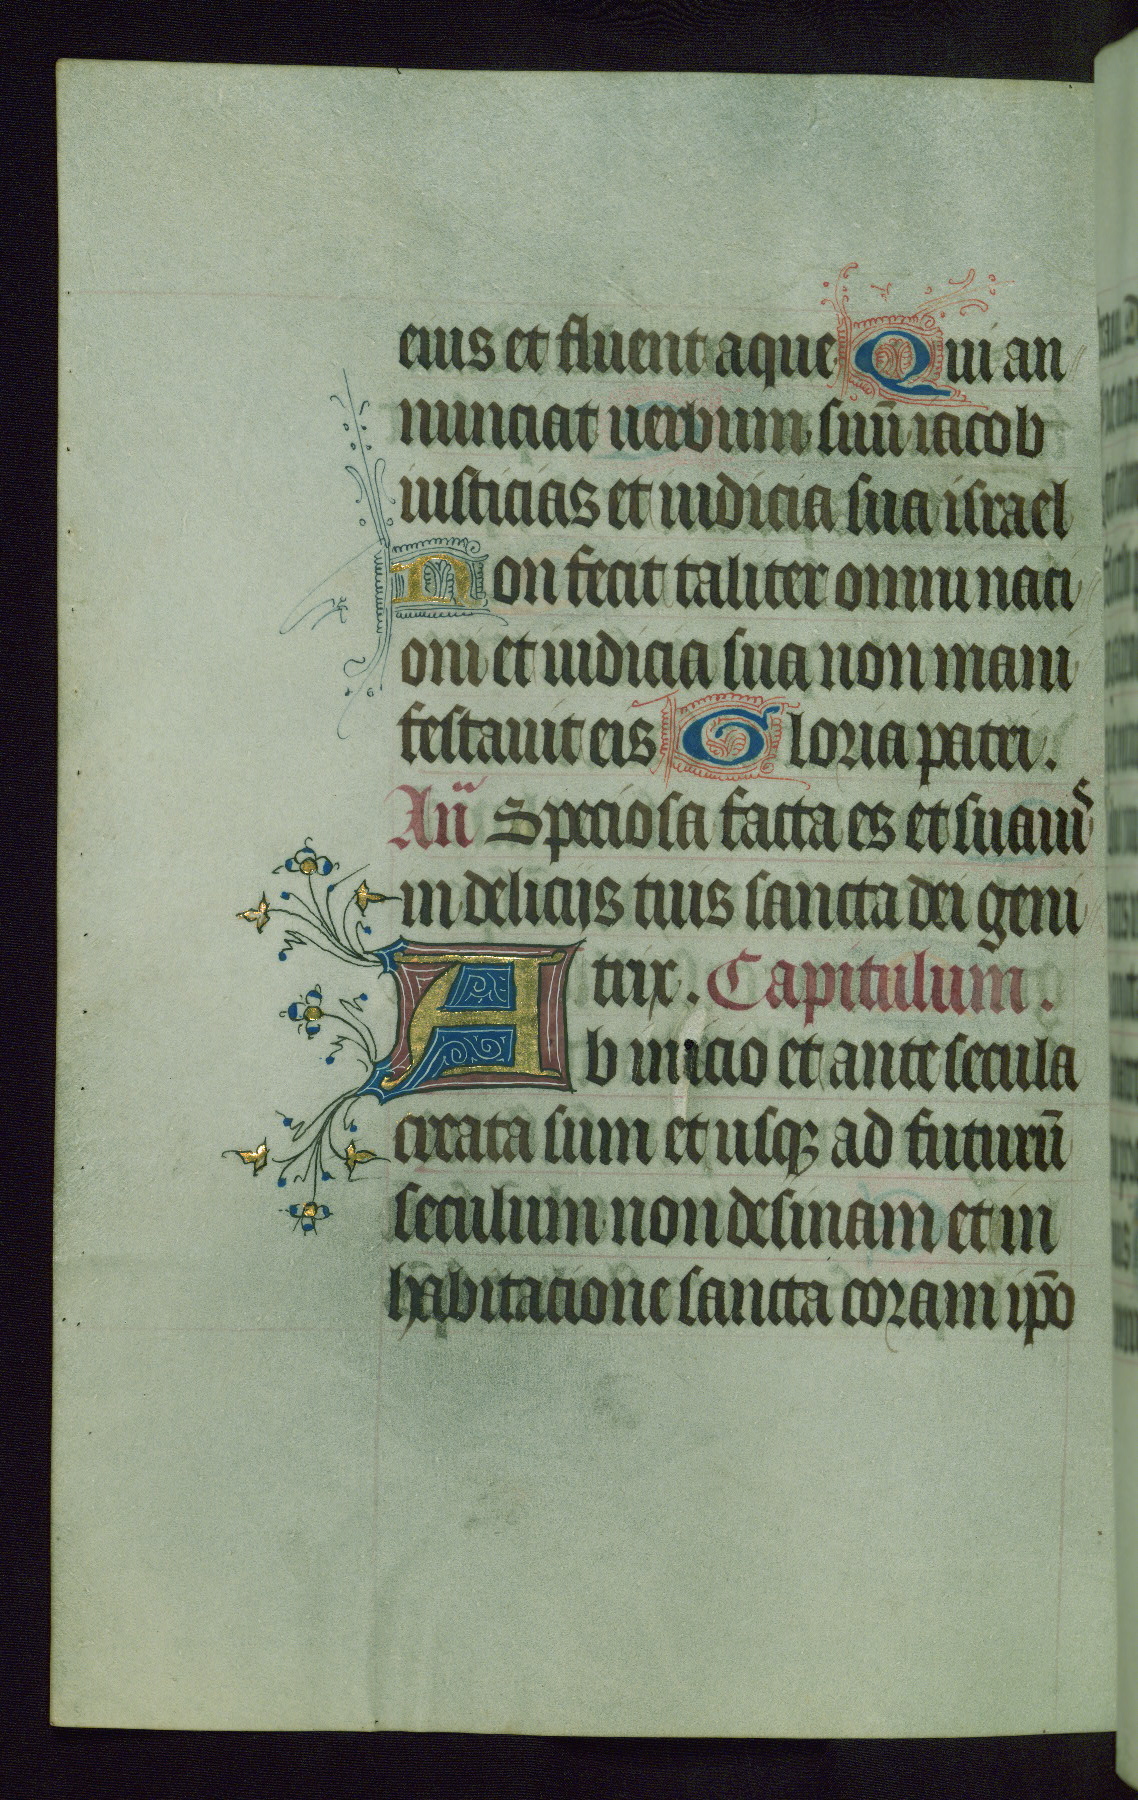 eius et fluent aque Qui an
nunciat uerbum suū iacob
iusticias et iudicia sua israel
Non fecit taliter omni nati
oni et iudicia sua non mani
festauit eis Gloria patri.
Añ Speciosa facta es et suauis
in delicijs tuis sancta dei geni
trix. Capitulum.
Ab inicio et ante secula
creata sum et usqꝫ ad futurū
seculum non desinam et in
habitacione sancta coram ipō